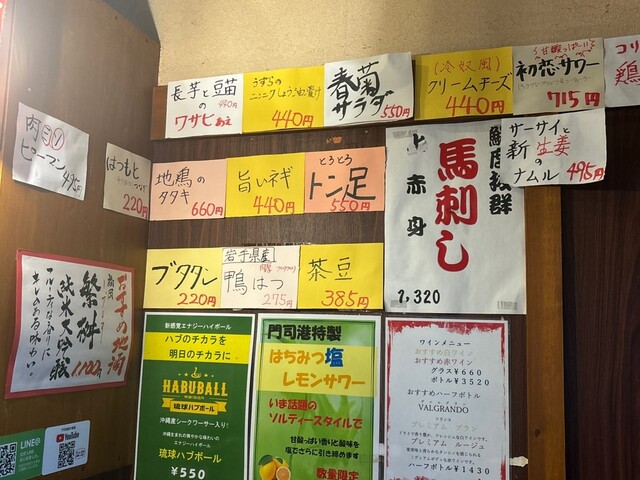 長芋と豆苗
の 440円
ワサビあえ
うずらの
ニンニクしょうゆ漬け
440円
春菊
サラダ
550円
(冷奴風)
クリームチーズ
440円
甘酸っぱーい
初恋サワー
715円
コリ
鶏
肉ミソ
ピーマン
495円
はつもと
220円
地鶏の
タタキ
660円
旨いネギ
440円
とろとろ
トン足
550円
鮮度抜群
馬刺し
上赤身
1,320
サーサイと
新生姜
の
ナムル 495円
ブタタン
220円
岩手県産
鴨はつ
275円
茶豆
385円
福岡
繁桝
純米大吟醸
1100円
キレのある味わい
LINE@
YouTube
新感覚エナジーハイボール
ハブのチカラを
明日のチカラに
HABUBALL
琉球ハブボール
沖縄産シークワーサー入り!
沖縄生まれの爽やかな味わいの
エナジーハイボール
琉球ハブボール
¥550
門司港特製
はちみつ塩
レモンサワー
いま話題の
ソルティースタイルで
甘酸っぱい香りと酸味を
塩でさらに引き締めます
数量限定
ワインメニュー
おすすめ白ワイン
おすすめ赤ワイン
グラス¥660
ボトル¥3520
おすすめハーフボトル
VALGRANDO
プレミアム ブラン
プレミアム ルージュ
ハーフボトル¥1430